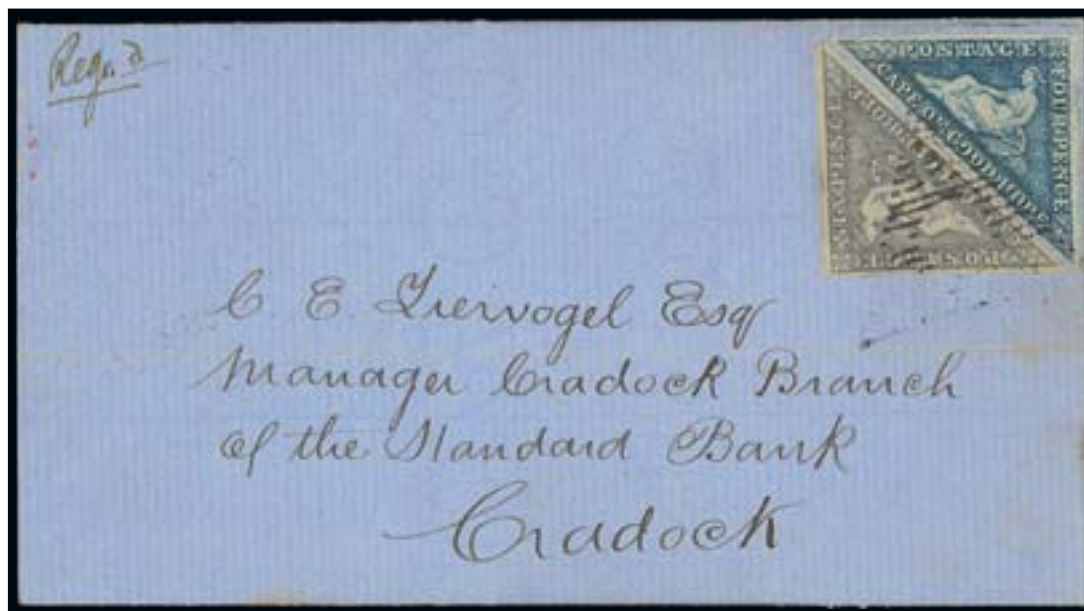 Regd
POSTAGE
FOURPENCE
CAPE OF GOOD HOPE
SIX PENCE
POSTAGE
C. E. Liervogel Esqr
Manager Cradock Branch
of the Standard Bank
Cradock